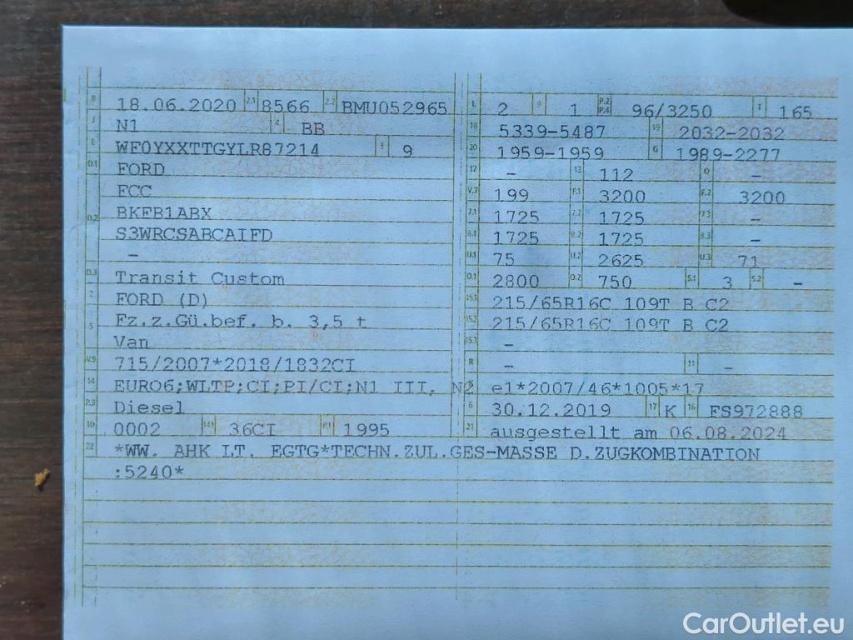 B 18.06.2020 2.1 8566 2.2 BMU052965
J N1 4 BB
E WF0YXXTTGYLR87214 3 9
D.1 FORD
FCC
D.2 BKFB1ABX
S3WRCSABCAIFD
–
D.3 Transit Custom
2 FORD (D)
5 Fz.z.Gü.bef. b. 3,5 t
Van
V.9 715/2007*2018/1832CI
14 EURO6;WLTP;CI;PI/CI;N1 III, N2
P.3 Diesel
10 0002 14.1 36CI P.1 1995
22 *WW. AHK LT. EGTG*TECHN.ZUL.GES-MASSE D.ZUGKOMBINATION
:5240*
L 2 9 1 P.2 P.4 96/3250 T 165
18 5339-5487 19 2032-2032
20 1959-1959 G 1989-2277
12 – 13 112 Q –
V.7 199 F.1 3200 F.2 3200
7.1 1725 7.2 1725 7.3 –
8.1 1725 8.2 1725 8.3 –
U.1 75 U.2 2625 U.3 71
O.1 2800 O.2 750 S.1 3 S.2 –
15.1 215/65R16C 109T B C2
15.2 215/65R16C 109T B C2
15.3 –
R – 11 –
K e1*2007/46*1005*17
6 30.12.2019 17 K 16 FS972888
21 ausgestellt am 06.08.2024
CarOutlet.eu